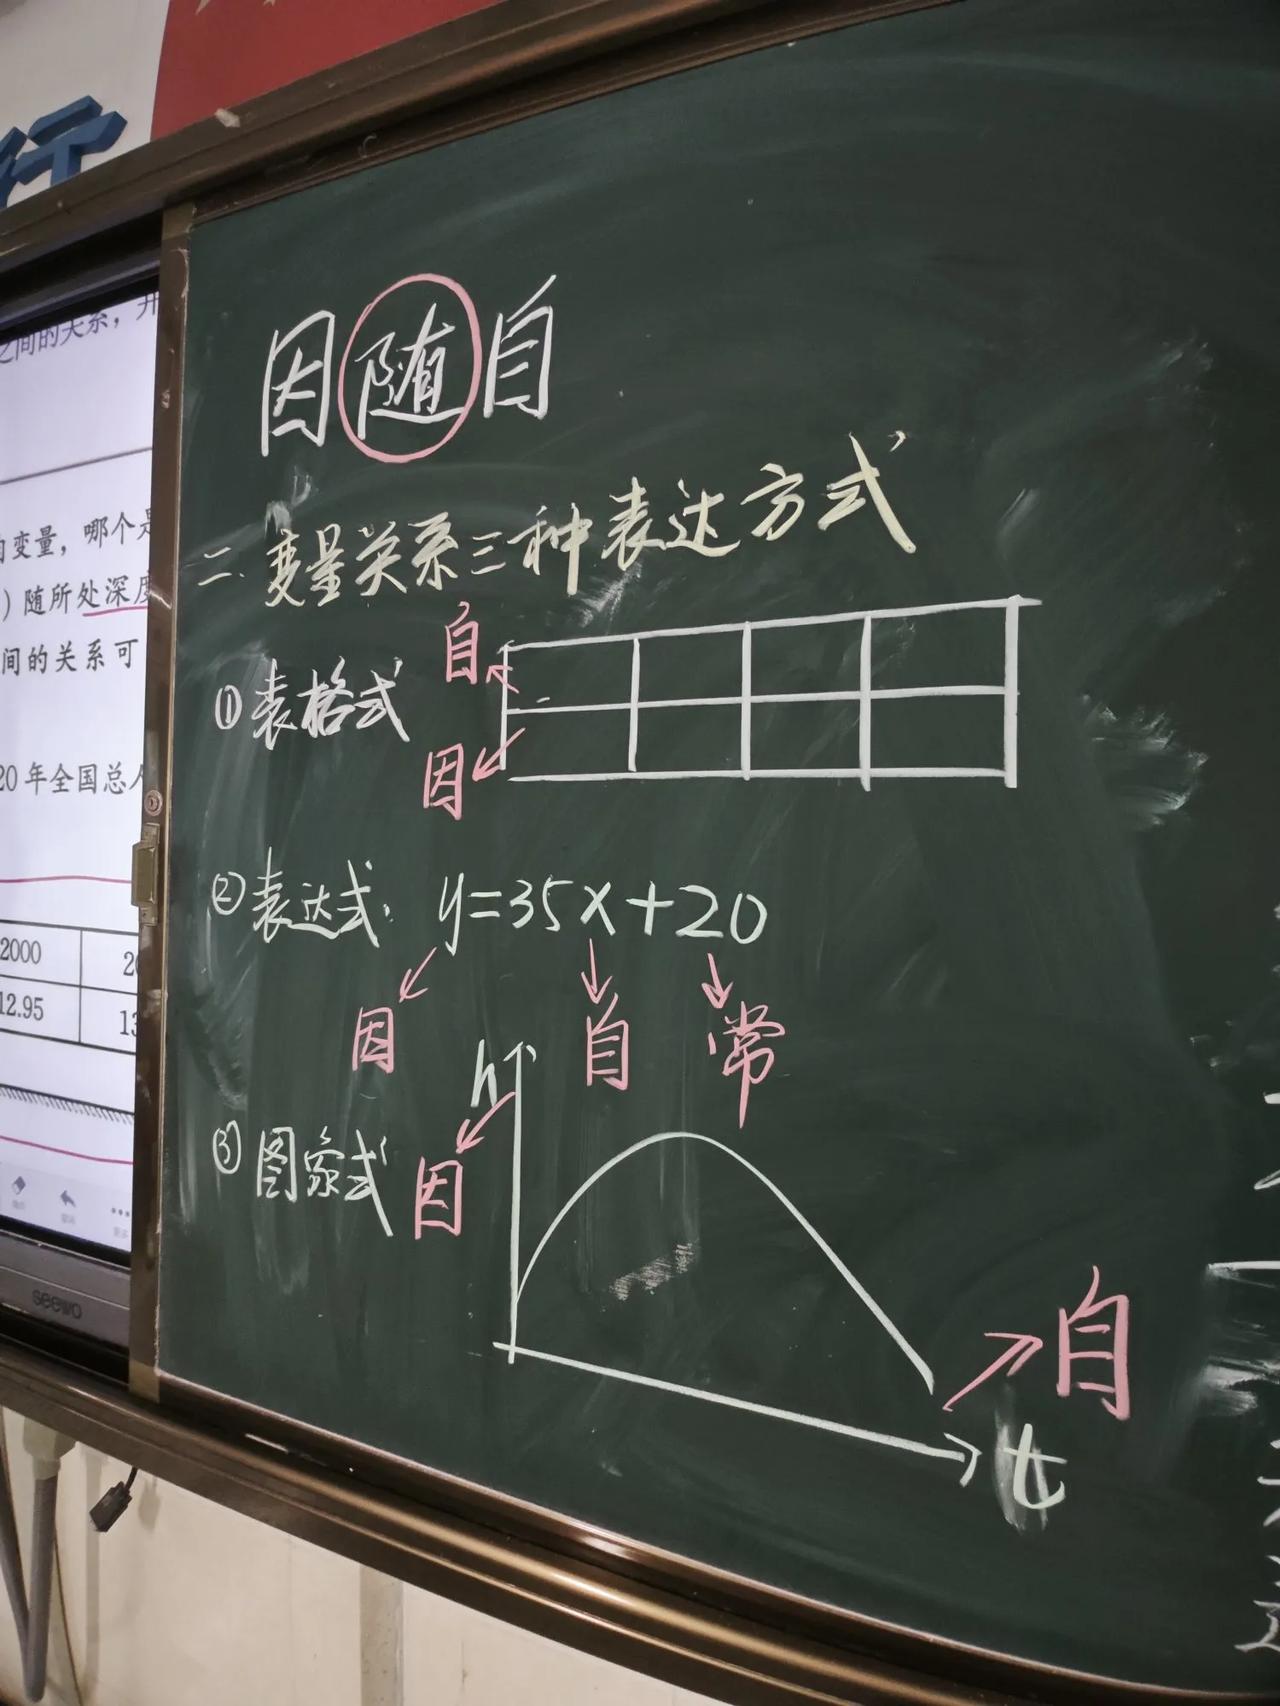 行
之间的关系，并
变量，哪个是
）随所处深度
间的关系可
20年全国总人
2000 20
12.95 13
seewo
因随自
二. 变量关系三种表达方式
①表格式
自
因
②表达式. y=35x+20
因 自 常
③图象式
h
因
自
t